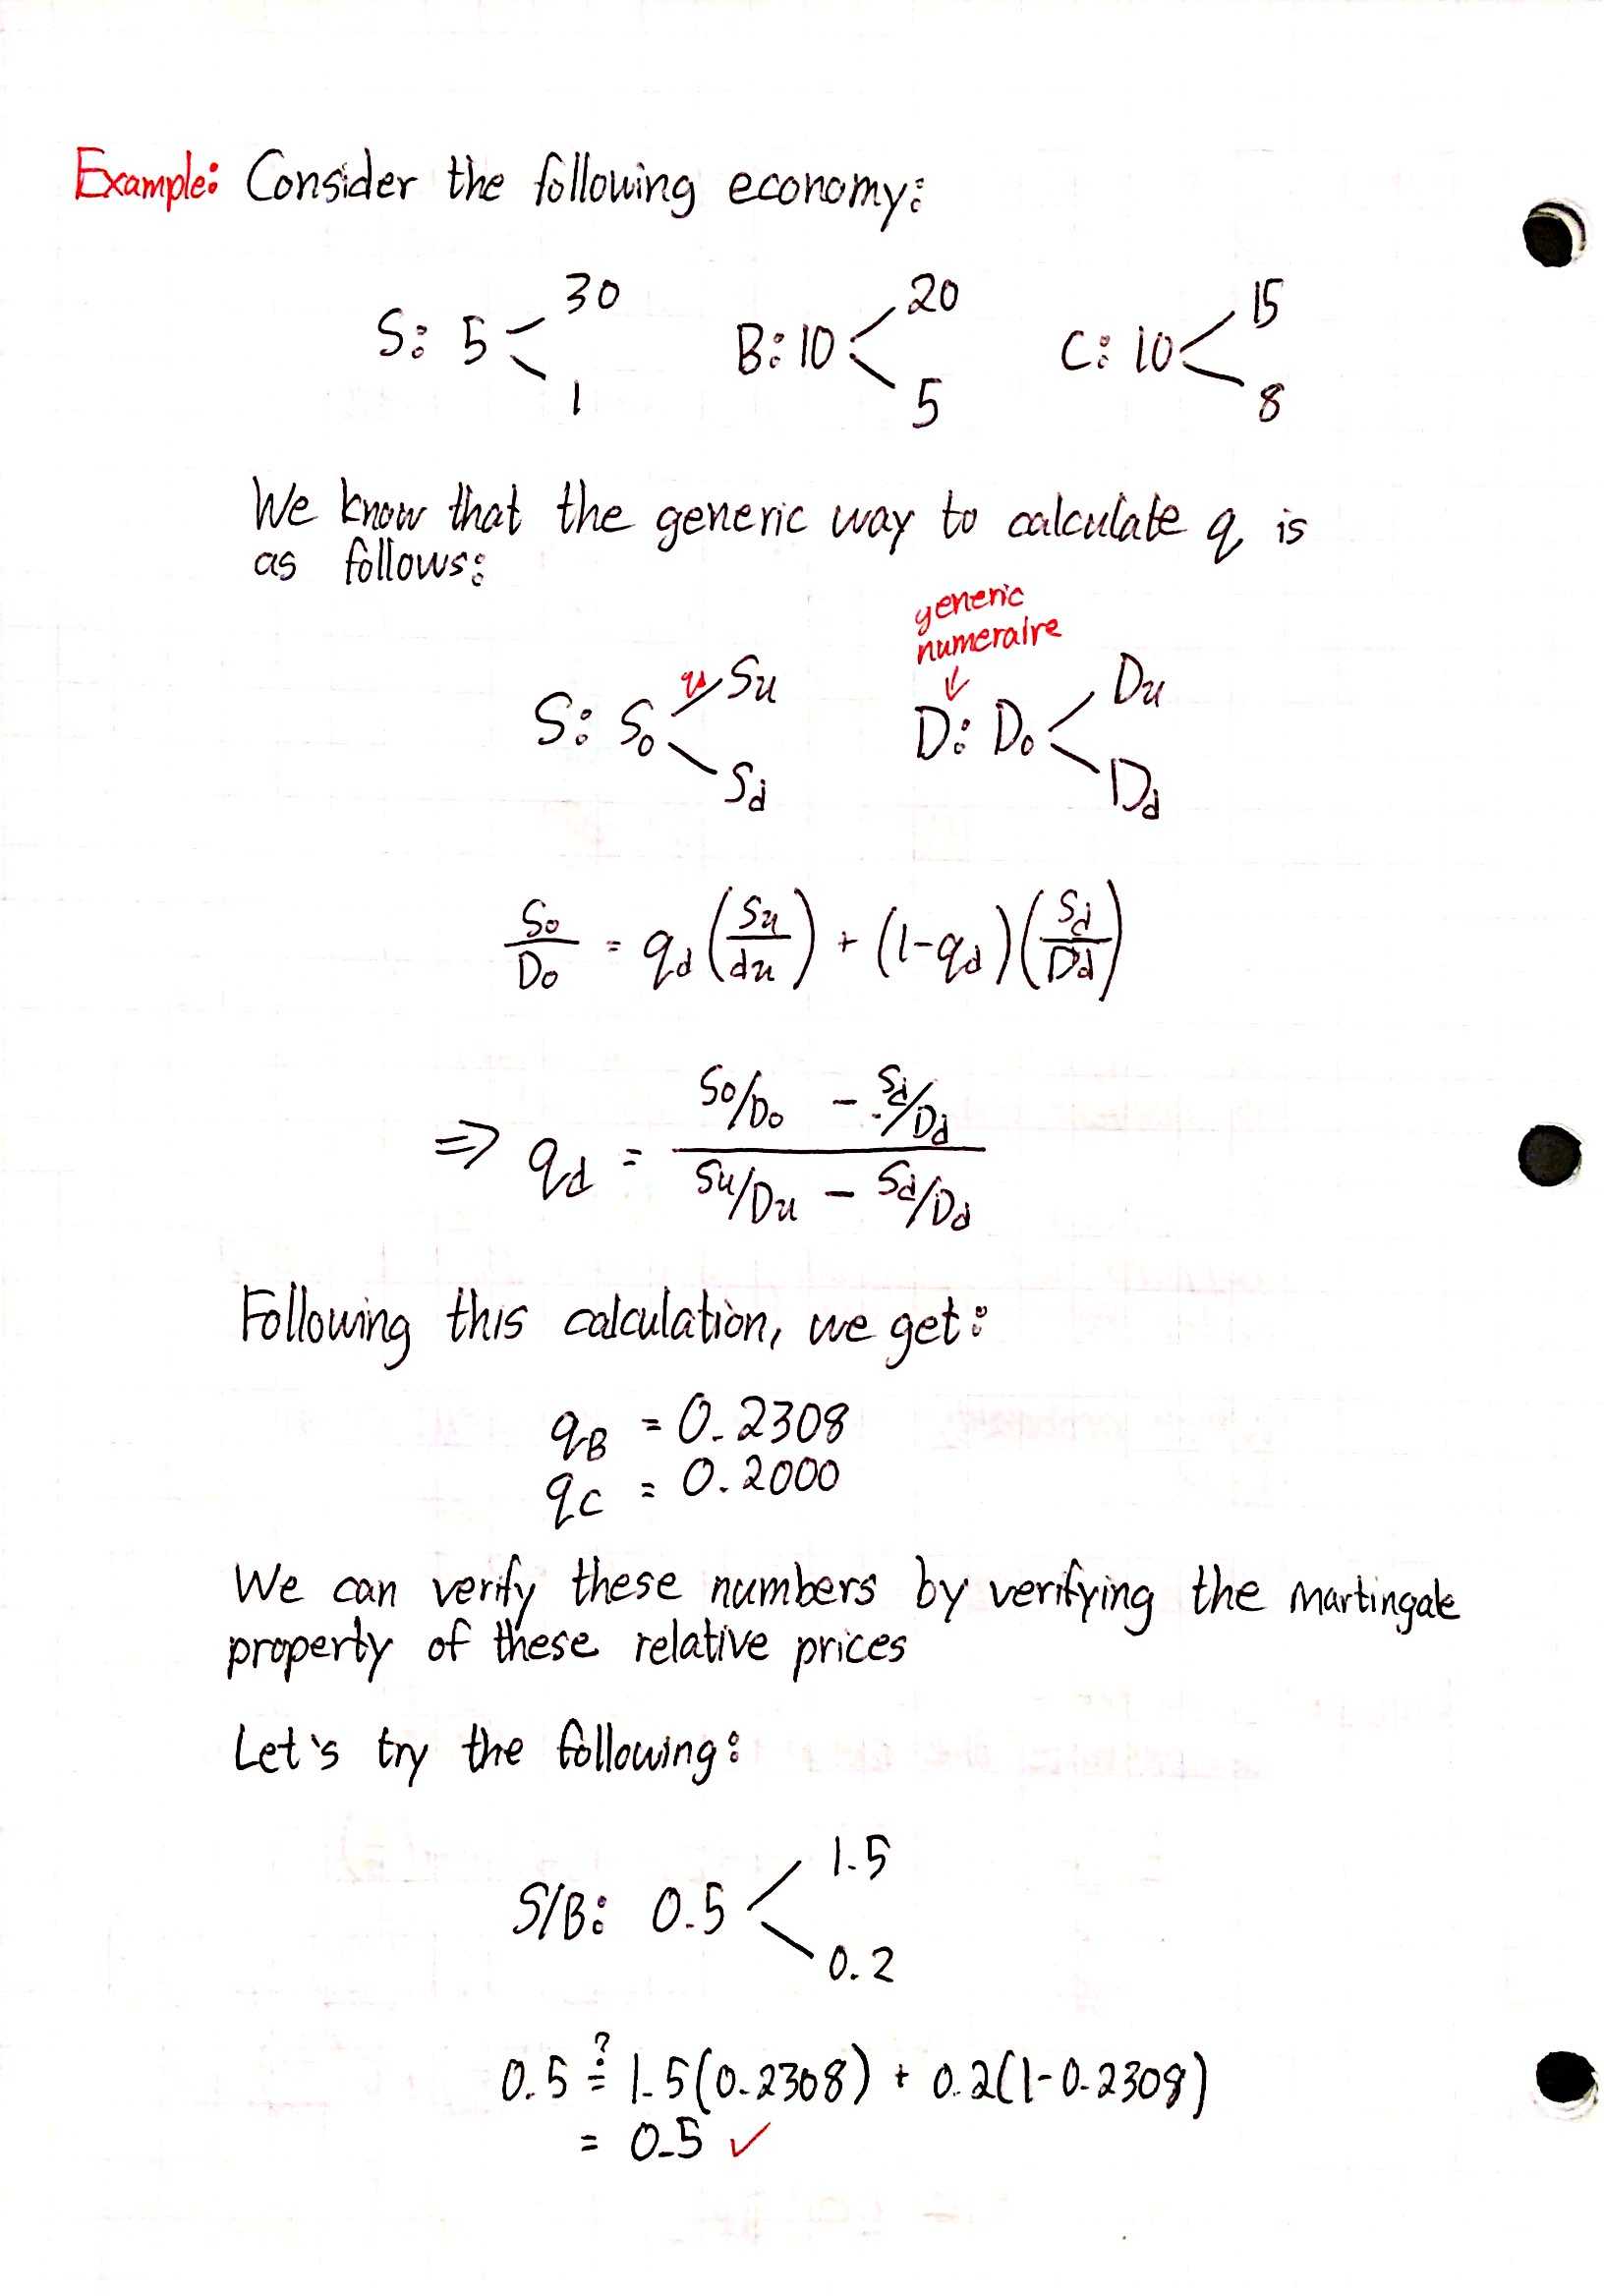 Example: Consider the following economy:
S: 5 < 30 1 B: 10 < 20 5 C: 10 < 15 8
We know that the generic way to calculate q is
as follows:
generic
numeraire
↓
S: S₀ < Su Sd D: D₀ < Du Dd
S₀/D₀ = qd (Su/du) + (1-qd)(Sd/Dd)
⇒ qd = (S₀/D₀ - Sd/Dd) / (Su/Du - Sd/Dd)
Following this calculation, we get:
qB = 0.2308
qC = 0.2000
We can verify these numbers by verifying the Martingale
property of these relative prices
Let's try the following:
S/B: 0.5 < 1.5 0.2
0.5 ≟ 1.5(0.2308) + 0.2(1-0.2308)
= 0.5 ✓